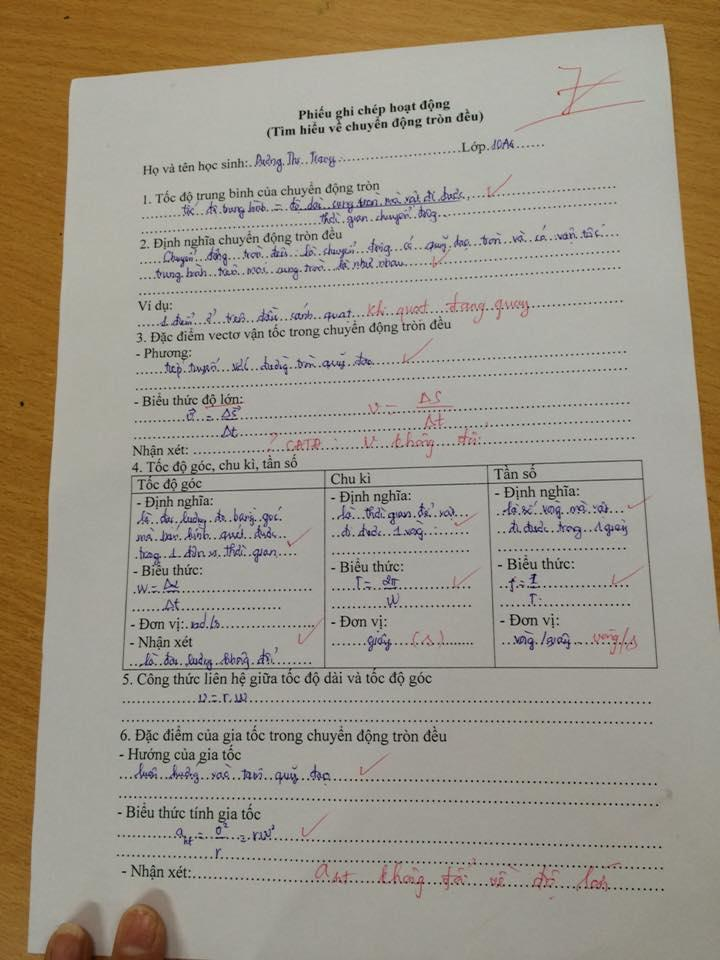 7
Phiếu ghi chép hoạt động
(Tìm hiểu về chuyển động tròn đều)
Họ và tên học sinh: Dương Thu Trang Lớp 10A4
1. Tốc độ trung bình của chuyển động tròn
tốc độ trung bình = độ dài cung tròn mà vật đi được
thời gian chuyển động
2. Định nghĩa chuyển động tròn đều
Chuyển động tròn đều là chuyển động có quỹ đạo tròn và có vận tốc
trung bình trên mọi cung tròn là như nhau
Ví dụ:
1 điểm ở trên đầu cánh quạt khi quạt đang quay
3. Đặc điểm vectơ vận tốc trong chuyển động tròn đều
- Phương:
tiếp tuyến với đường tròn quỹ đạo
- Biểu thức độ lớn:
v = Δs / Δt v = ΔS / Δt
Nhận xét: CĐTĐ: v không đổi
4. Tốc độ góc, chu kì, tần số
Tốc độ góc
- Định nghĩa:
là đại lượng đo bằng góc
mà bán kính quét được
trong 1 đơn vị thời gian
- Biểu thức:
W = Δα / Δt
- Đơn vị: rad/s
- Nhận xét
là đại lượng không đổi
Chu kì
- Định nghĩa:
là thời gian để vật
đi được 1 vòng
- Biểu thức:
T = 2π / W
- Đơn vị:
giây (s)
Tần số
- Định nghĩa:
là số vòng mà vật
đi được trong 1 giây
- Biểu thức:
f = 1 / T
- Đơn vị:
vòng/giây vòng/s
5. Công thức liên hệ giữa tốc độ dài và tốc độ góc
v = r.w
6. Đặc điểm của gia tốc trong chuyển động tròn đều
- Hướng của gia tốc
luôn hướng vào tâm quỹ đạo
- Biểu thức tính gia tốc
aht = v² / r = rw²
- Nhận xét: aht không đổi về độ lớn